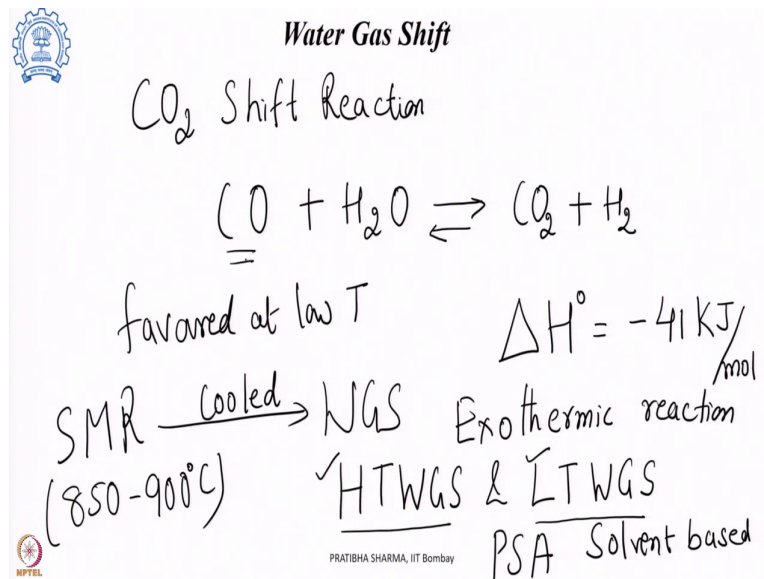 Water Gas Shift
CO₂ Shift Reaction
CO + H₂O ⇌ CO₂ + H₂
favored at low T
ΔH° = -41 KJ/mol
SMR cooled → WGS
Exothermic reaction
(850-900°C)
✓HTWGS & ✓LTWGS
PSA Solvent based
PRATIBHA SHARMA, IIT Bombay
NPTEL